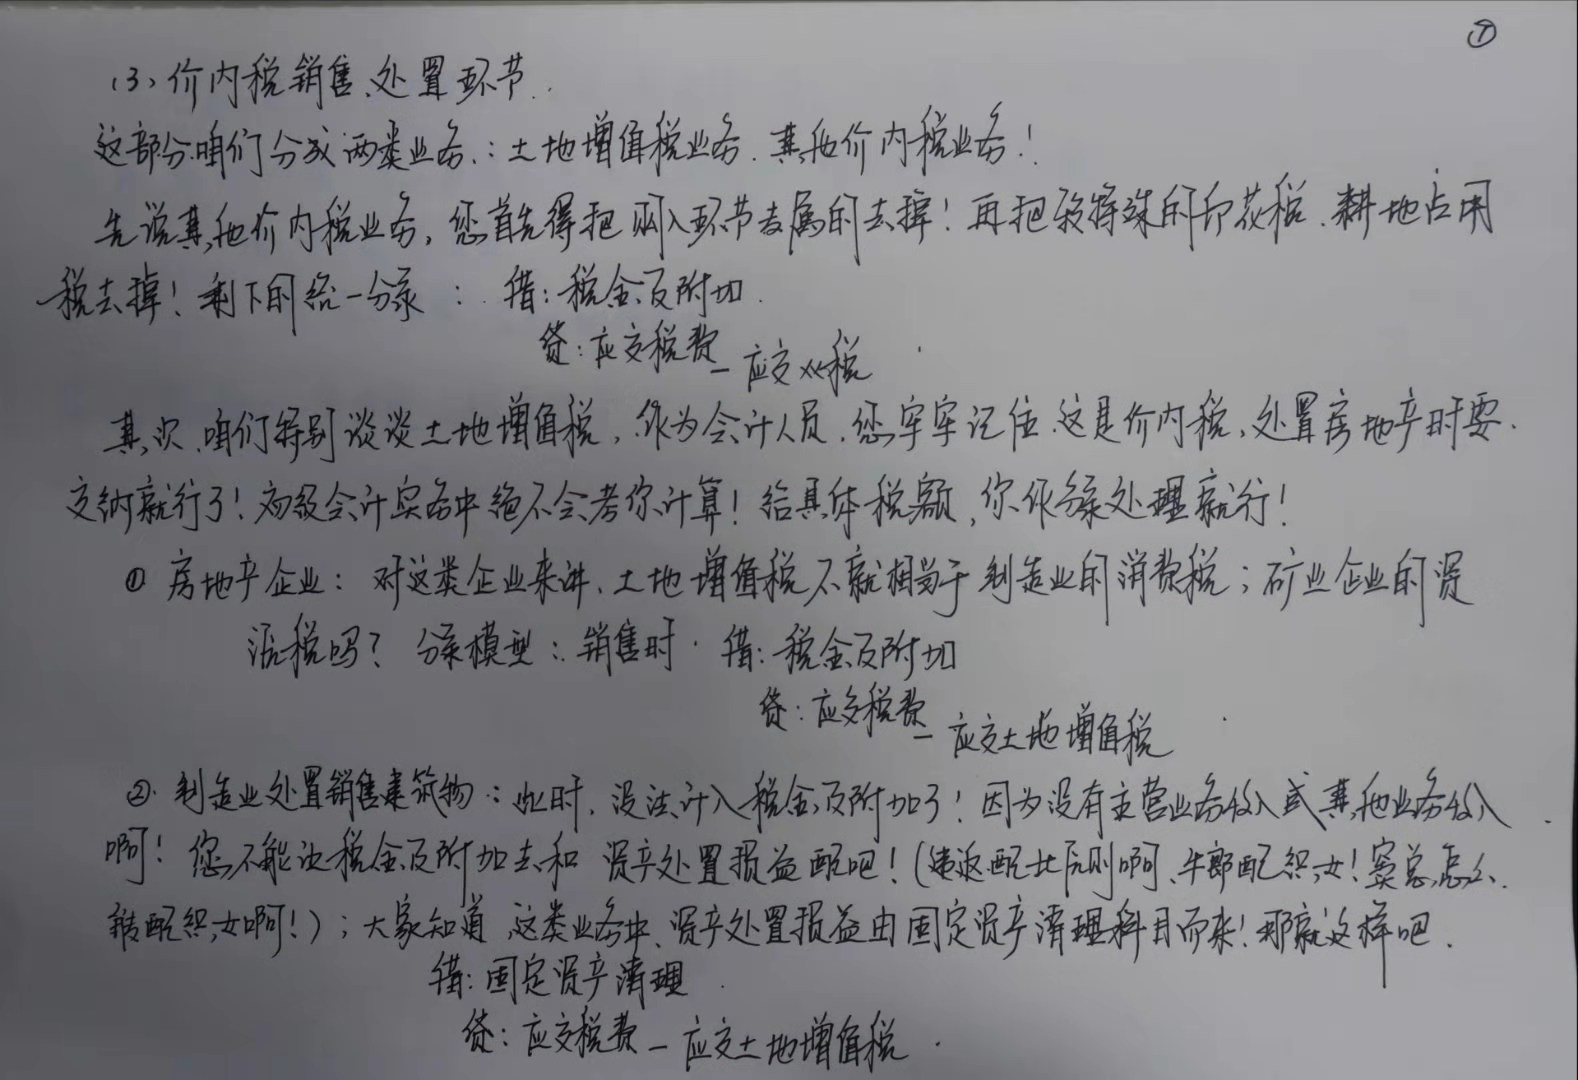 ⑦
(3)、价内税销售、处置环节.
这部分咱们分成两类业务：土地增值税业务、其他价内税业务！
先说其他价内税业务，您首先得把购入环节专属的去掉！再把较特殊的印花税、耕地占用
税去掉！剩下的统一分录：借：税金及附加
贷：应交税费—应交××税
其次，咱们特别谈谈土地增值税，作为会计人员，您牢牢记住，这是价内税，处置房地产时要
交纳就行了！初级会计实务中绝不会考你计算！给具体税额，你作分录处理就行！
① 房地产企业：对这类企业来讲，土地增值税不就相当于制造业的消费税；矿业企业的资
源税吗？分录模型：销售时 借：税金及附加
贷：应交税费—应交土地增值税
② 制造业处置销售建筑物：此时，没法计入税金及附加了！因为没有主营业务收入或其他业务收入
啊！您不能让税金及附加去和资产处置损益配吧！（违返配比原则啊，牛郎配织女！窦总怎么
能配织女啊！）；大家知道，这类业务中，资产处置损益由固定资产清理科目而来！那就这样吧.
借：固定资产清理
贷：应交税费—应交土地增值税